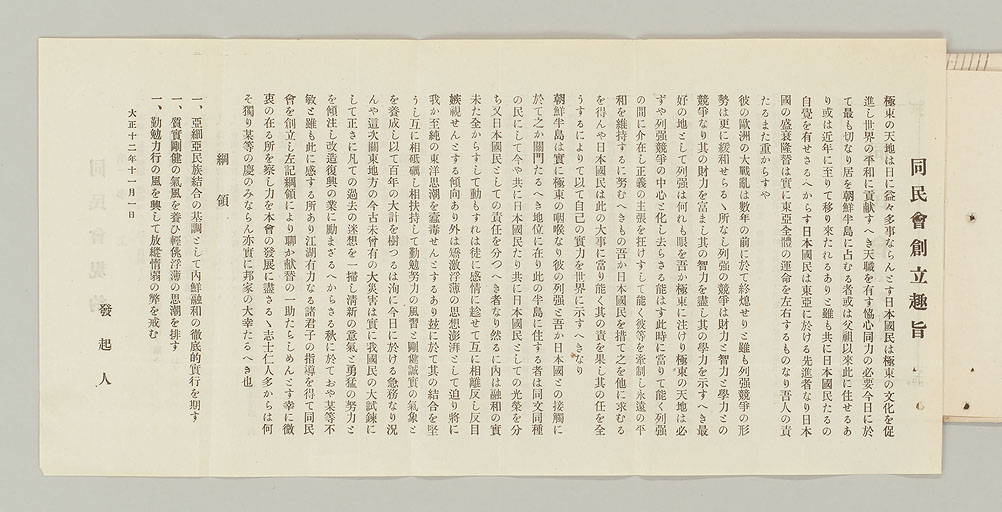 同民會創立趣旨
極東の天地は日に益々多事ならんとす日本國民は極東の文化を促
進し世界の平和に貢獻すへき天職を有す協心同力の必要今日に於
て最も切なり居を朝鮮半島に占むる者或は父祖以來此に住せるあ
り或は近年に至りて移り來たれるありと雖も共に日本國民たるの
自覺を有せさるへからす日本國民は東亞に於ける先進者なり日本
國の盛衰隆替は實に東亞全體の運命を左右するものなり吾人の責
たるまた重からすや
彼の歐洲の大戰亂は數年の前に於て終熄せりと雖も列强競爭の形
勢は更に緩和せらるゝ所なし列强の競爭は財力と智力と學力との
競爭なり其の財力を富まし其の智力を盡し其の學力を示すへき最
好の地として列强は何れも眼を吾か極東に注けり極東の天地は必
すや列强競爭の中心と化し去らさる能はす此時に當りて能く列强
の間に介在し正義の主張を抂けすして能く彼等を牽制し永遠の平
和を維持するに努むへきもの吾か日本國民を措て之を他に求むる
を得んや日本國民は此の大事に當り能く其の責を果し其の任を全
うするによりて以て自己の實力を世界に示すへきなり
朝鮮半島は實に極東の咽喉なり彼の列强と吾か日本國との接觸に
於て之か關門たるへき地位に在り此の半島に住する者は同文同種
の民にして今や共に日本國民たり共に日本國民としての光榮を分
ち又日本國民としての責任を分つへき者なり然るに內は融和の實
未た全からすして動もすれは徒に感情に趁せて互に相離反し反目
嫉視せんとする傾向あり外は矯激浮薄の思想澎湃として迫り將に
我か至純の東洋思潮を蠧毒せんとするあり玆に於て其の結合を堅
うし互に相砥礪し相扶持して勤勉努力の風習と剛健誠實の氣象と
を養成し以て百年の大計を樹つるは洵に今日に於ける急務なり況
んや這次關東地方の今古未曾有の大災害は實に我國民の大試鍊に
して正さに凡ての過去の迷想を一掃し淸新の意氣と勇猛の努力と
を傾注し改造復興の業に勵まさるへからさる秋に於ておや某等不
敏と雖も此に感する所あり江湖有力なる諸君子の指導を得て同民
會を創立し左記綱領により聊か獻替の一助たらしめんとす幸に微
衷の在る所を察し力を本會の發展に盡さるゝ志士仁人多からは何
そ獨り某等の慶のみならん亦實に邦家の大幸たるへき也
綱領
一、亞細亞民族結合の基調として內鮮融和の徹底的實行を期す
一、質實剛健の氣風を養ひ輕佻浮薄の思潮を排す
一、勤勉力行の風を興して放縱惰弱の弊を戒む
大正十二年十一月一日
發起人